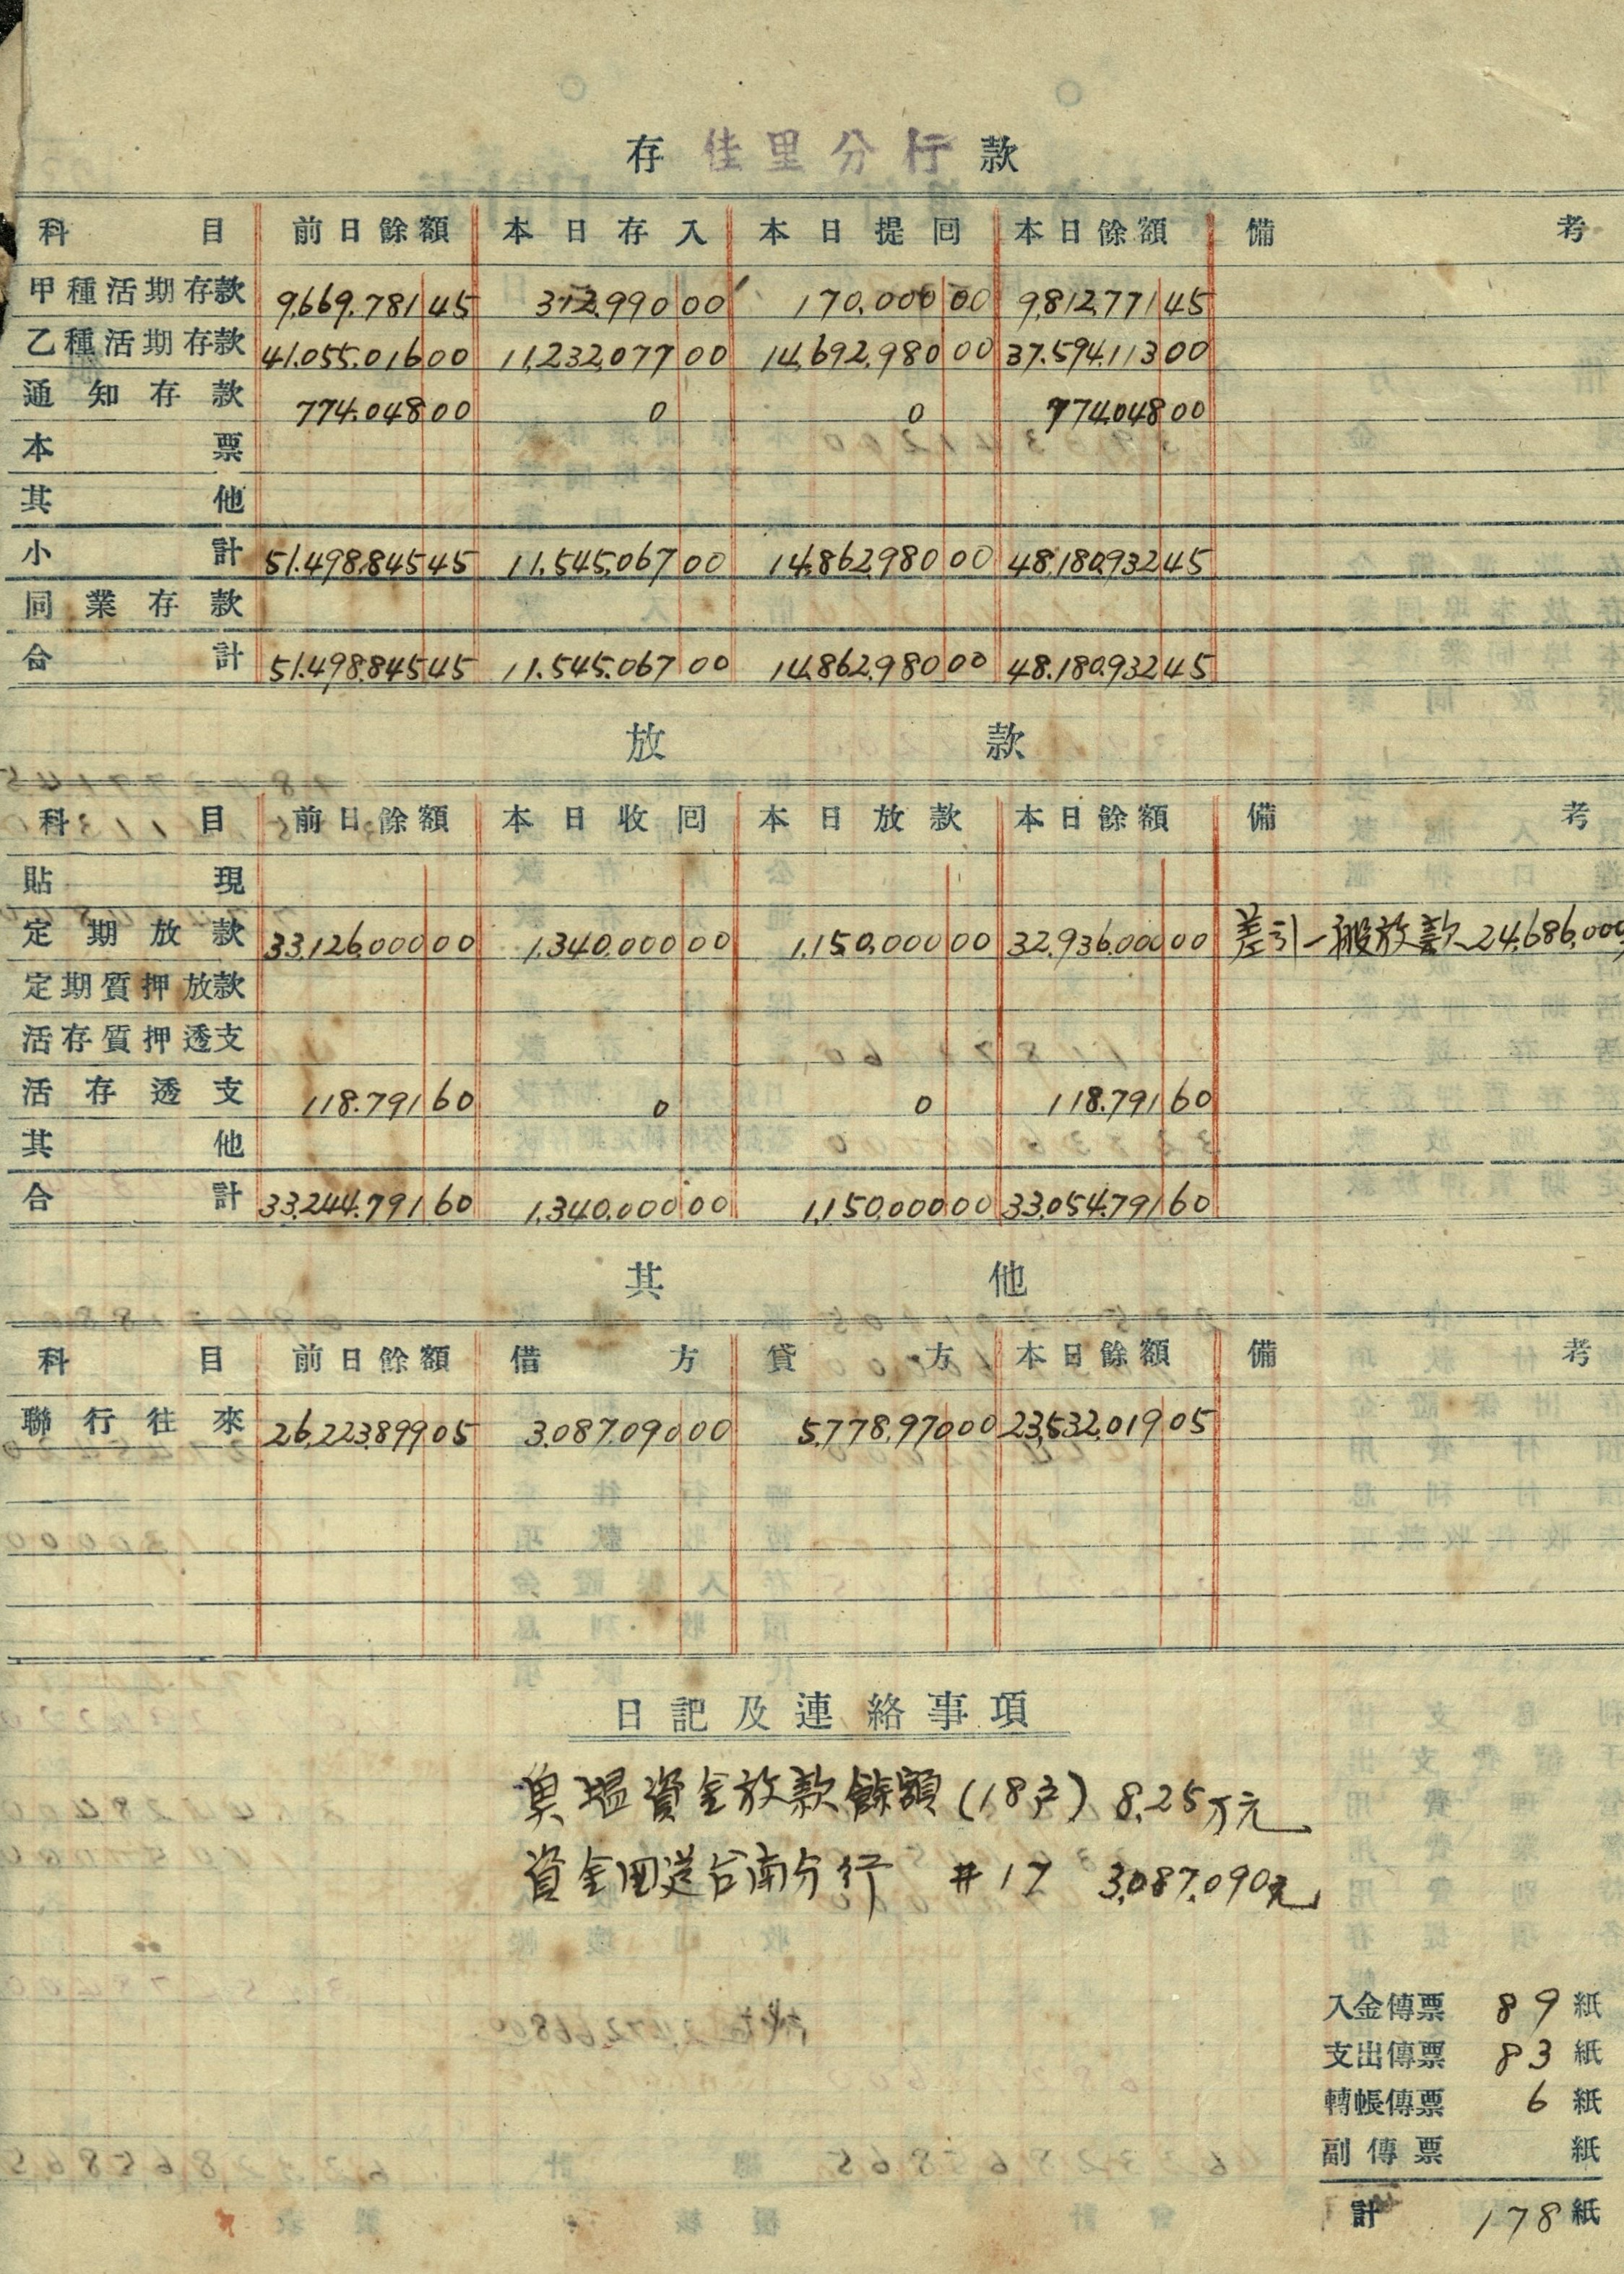 存 佳里分行 款
科目 前日餘額 本日存入 本日提回 本日餘額 備考
甲種活期存款 9,669,781 45 312,990 00 170,000 00 9,812,771 45
乙種活期存款 41,055,016 00 11,232,077 00 14,692,980 00 37,594,113 00
通知存款 774,048 00 0 0 774,048 00
本票
其他
小計 51,498,845 45 11,545,067 00 14,862,980 00 48,180,932 45
同業存款
合計 51,498,845 45 11,545,067 00 14,862,980 00 48,180,932 45
放款
科目 前日餘額 本日收回 本日放款 本日餘額 備考
貼現
定期放款 33,126,000 00 1,340,000 00 1,150,000 00 32,936,000 00 差引一般放款 24,686,000
定期質押放款
活存質押透支
活存透支 118,791 60 0 0 118,791 60
其他
合計 33,244,791 60 1,340,000 00 1,150,000 00 33,054,791 60
其他
科目 前日餘額 借方 貸方 本日餘額 備考
聯行往來 26,223,899 05 3,087,090 00 5,778,970 00 23,532,019 05
日記及連絡事項
資金放款餘額(18戶) 8.25万元
資金回送台南分行 #17 3,087,090元
入金傳票 89 紙
支出傳票 83 紙
轉帳傳票 6 紙
副傳票 紙
計 178 紙